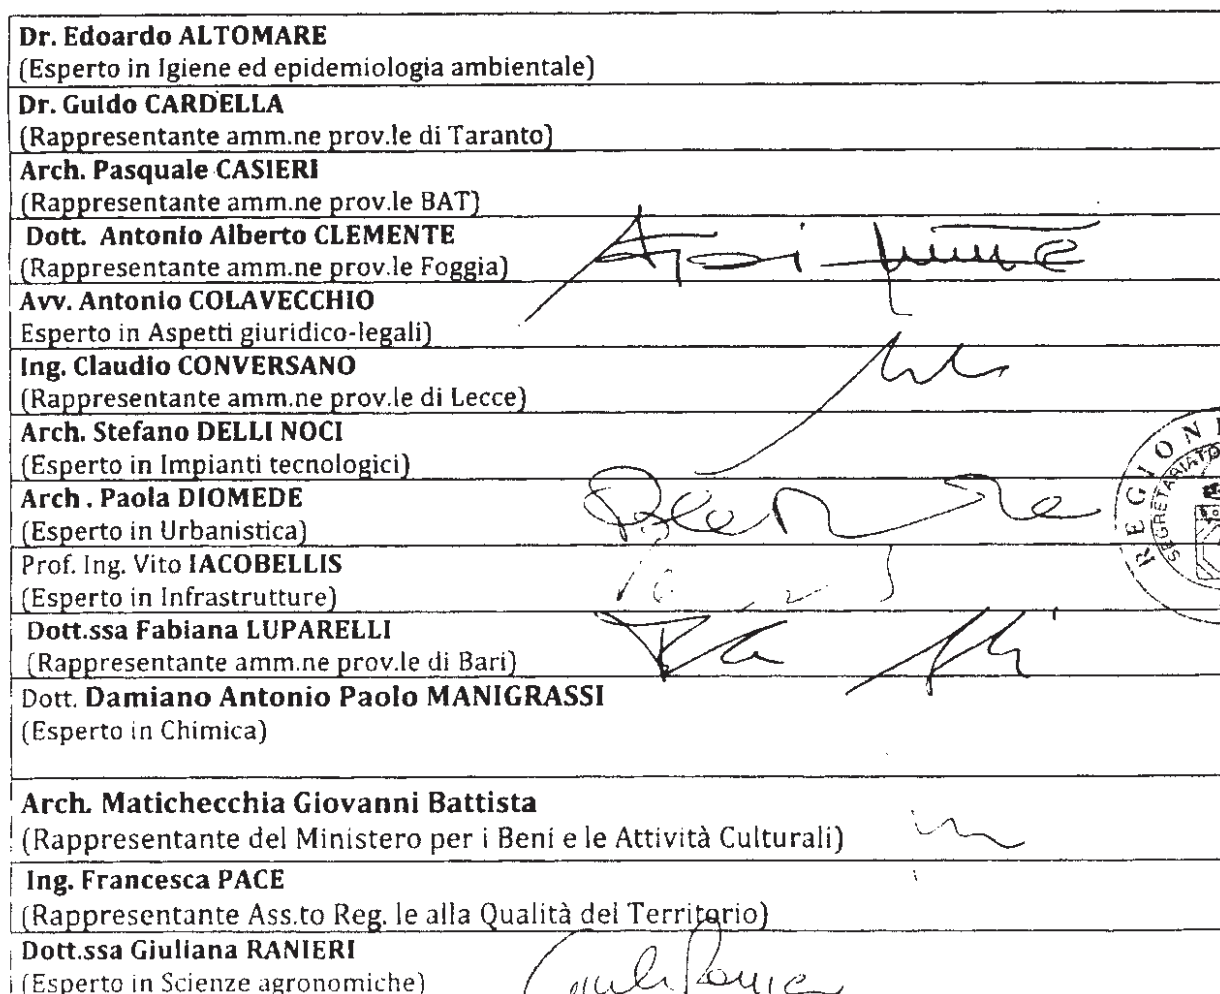 Dr. Edoardo ALTOMARE
(Esperto in Igiene ed epidemiologia ambientale)
Dr. Guido CARDELLA
(Rappresentante amm.ne prov.le di Taranto)
Arch. Pasquale CASIERI
(Rappresentante amm.ne prov.le BAT)
Dott. Antonio Alberto CLEMENTE
(Rappresentante amm.ne prov.le Foggia)
Avv. Antonio COLAVECCHIO
Esperto in Aspetti giuridico-legali)
Ing. Claudio CONVERSANO
(Rappresentante amm.ne prov.le di Lecce)
Arch. Stefano DELLI NOCI
(Esperto in Impianti tecnologici)
Arch . Paola DIOMEDE
(Esperto in Urbanistica)
Prof. Ing. Vito IACOBELLIS
(Esperto in Infrastrutture)
Dott.ssa Fabiana LUPARELLI
(Rappresentante amm.ne prov.le di Bari)
Dott. Damiano Antonio Paolo MANIGRASSI
(Esperto in Chimica)
Arch. Matichecchia Giovanni Battista
(Rappresentante del Ministero per i Beni e le Attività Culturali)
Ing. Francesca PACE
(Rappresentante Ass.to Reg. le alla Qualità del Territorio)
Dott.ssa Giuliana RANIERI
(Esperto in Scienze agronomiche)
REGION
SEGRETARIATO